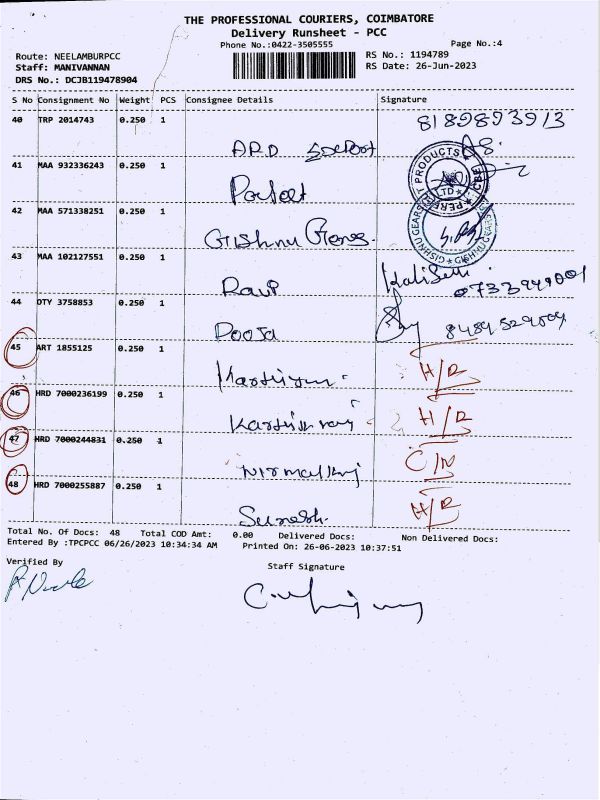 THE PROFESSIONAL COURIERS, COIMBATORE
Delivery Runsheet - PCC
Phone No.:0422-3505555
Page No.:4
Route: NEELAMBURPCC
Staff: MANIVANNAN
DRS No.: DCJB119478904
RS No.: 1194789
RS Date: 26-Jun-2023
S No Consignment No Weight PCS Consignee Details Signature
40 TRP 2014743 0.250 1 8189893913
ARD
41 MAA 932336243 0.250 1
PERFECT PRODUCTS CBE
42 MAA 571338251 0.250 1
Gishnu Gears
GISHNU GEARS
43 MAA 102127551 0.250 1
Ravi
44 OTY 3758853 0.250 1
Pooja
45 ART 1855125 0.250 1 H/R
46 HRD 7000236199 0.250 1 H/R
47 HRD 7000244831 0.250 1 C/N
48 HRD 7000255887 0.250 1 H/R
Suresh
Total No. Of Docs: 48 Total COD Amt: 0.00 Delivered Docs: Non Delivered Docs:
Entered By :TPCPCC 06/26/2023 10:34:34 AM Printed On: 26-06-2023 10:37:51
Verified By
Staff Signature